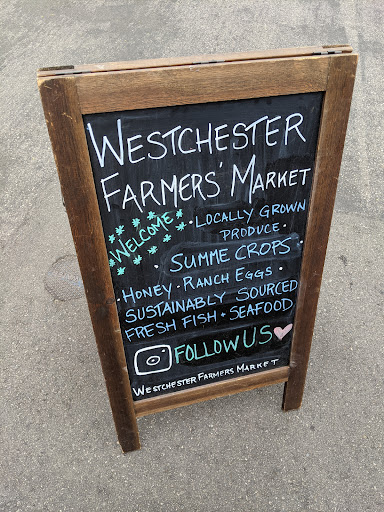 WESTCHESTER
FARMERS' MARKET
WELCOME
• LOCALLY GROWN
PRODUCE •
• SUMME CROPS •
• HONEY • RANCH EGGS •
SUSTAINABLY SOURCED
FRESH FISH + SEAFOOD
FOLLOW US
WESTCHESTER FARMERS MARKET